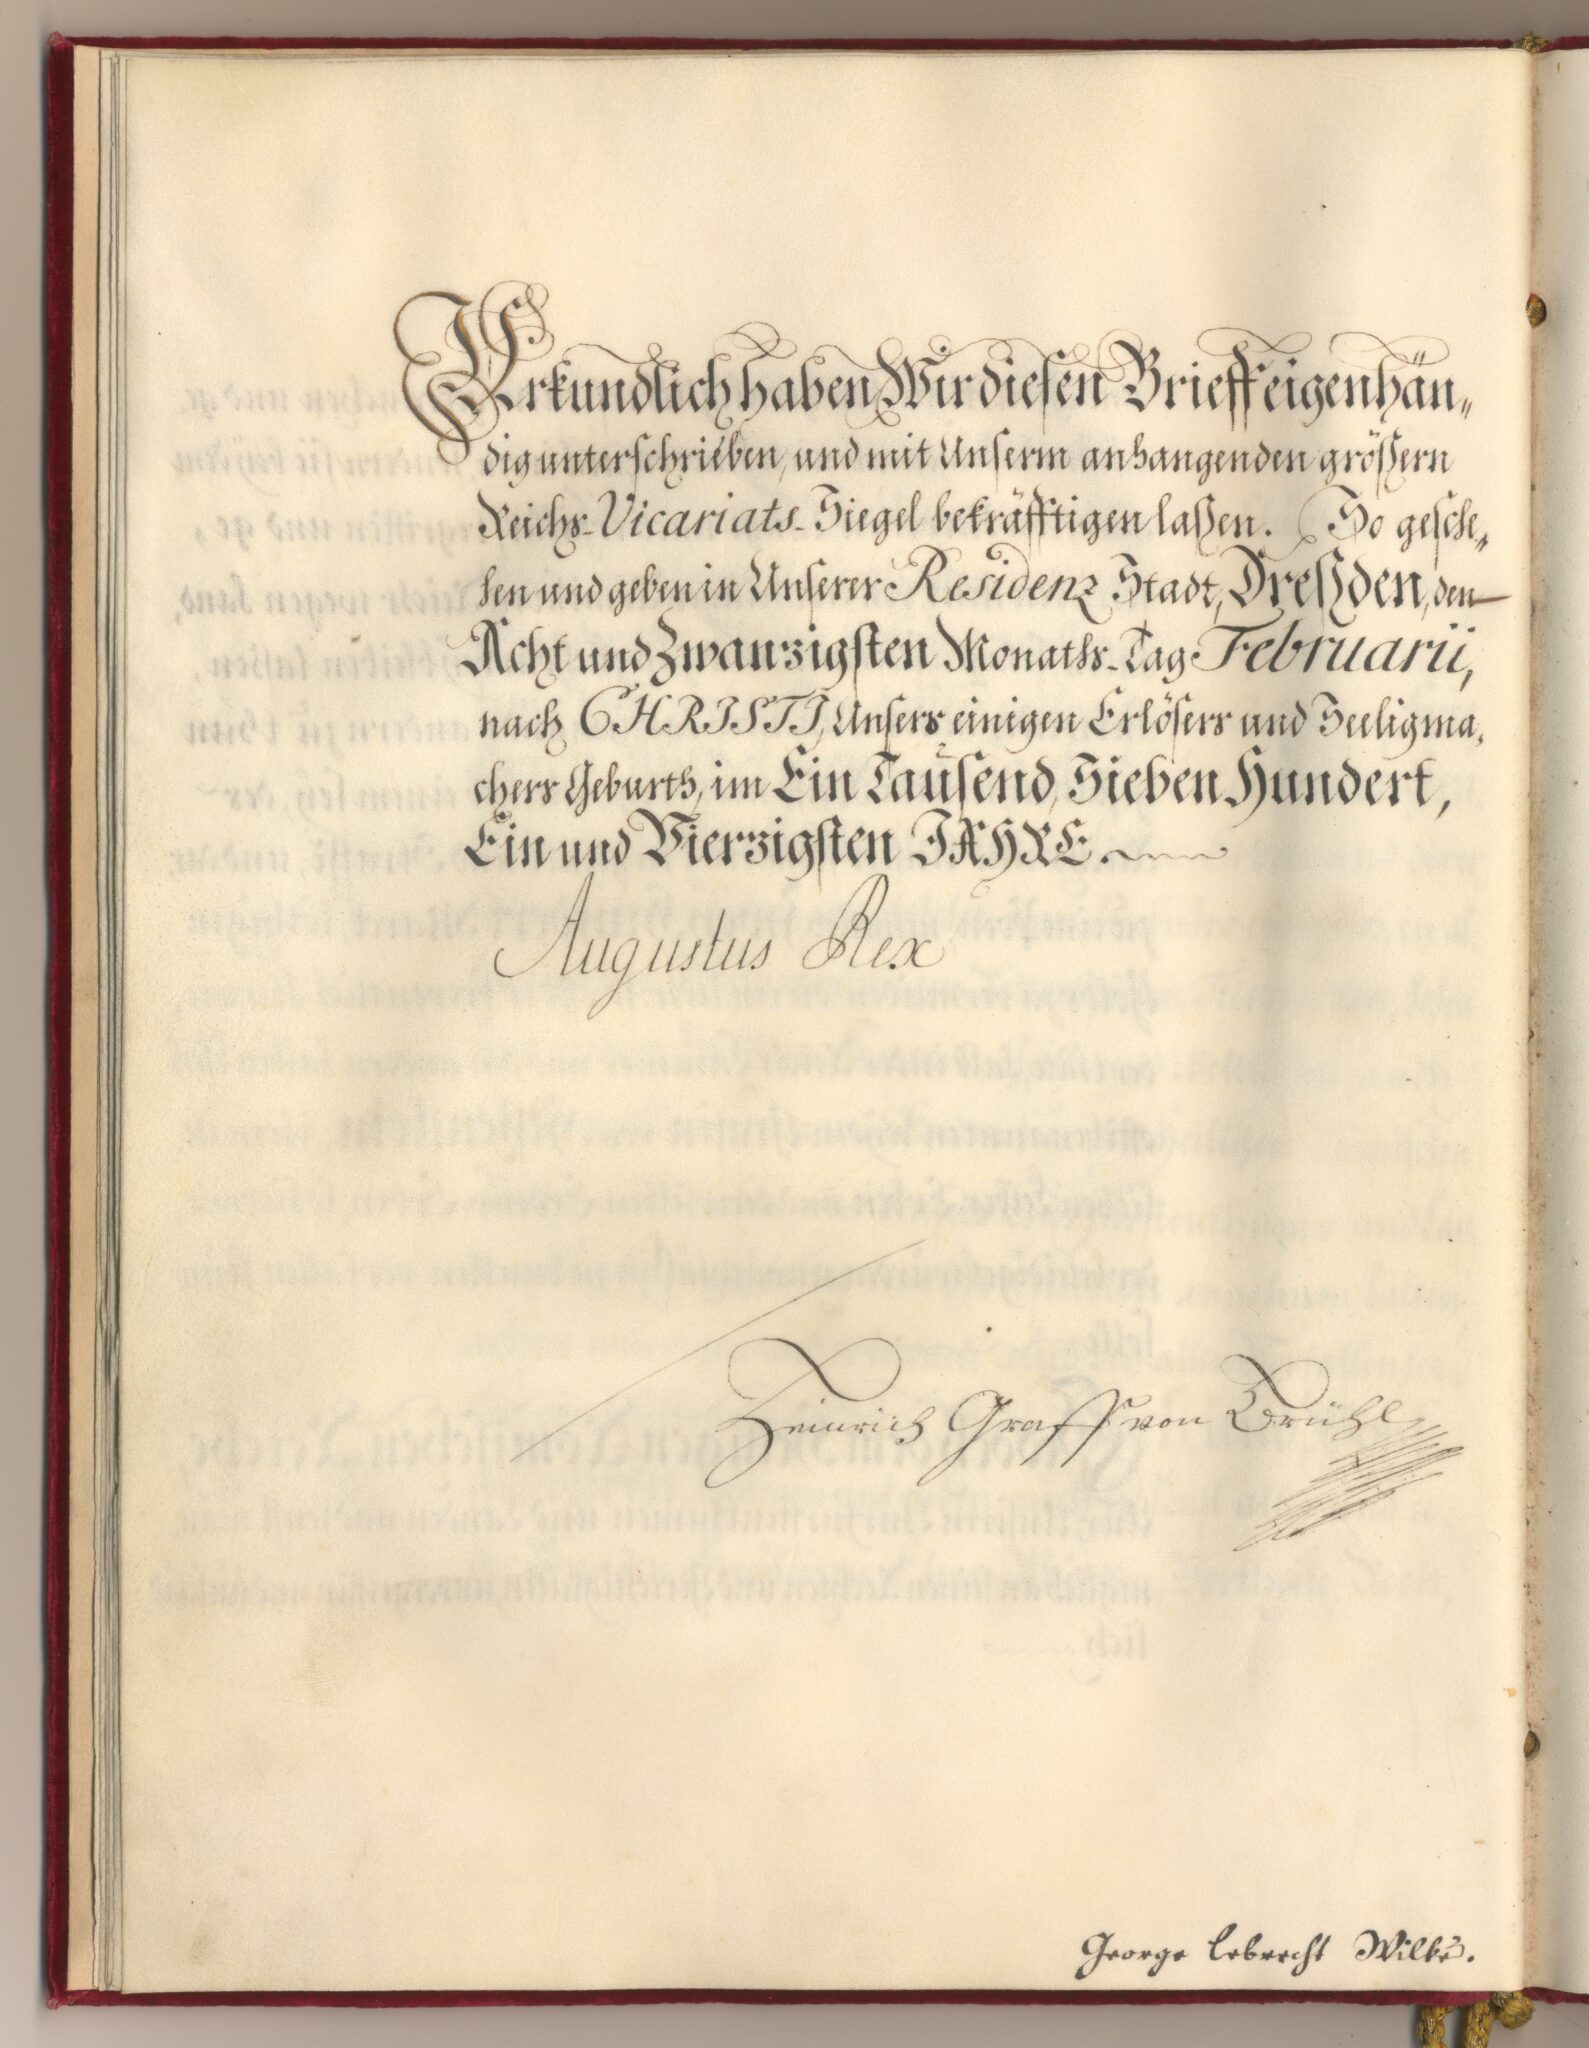 Urkundlich haben Wir diesen Brieff eigenhän„
dig unterschrieben, und mit Unserm anhangenden größern
Reichs-Vicariats-Siegel bekräfftigen laßen. So gesche„
hen und geben in Unserer Residenz Stadt, Dreßden, den
Acht und Zwanzigsten Monaths-Tag Februarii,
nach CHRISTI, Unsers einigen Erlösers und Seeligma„
chers Geburth, im Ein Tausend, Sieben Hundert,
Ein und Vierzigsten JAHRE.
Augustus Rex
Heinrich Graff von Brühl
George Lebrecht Wilke.